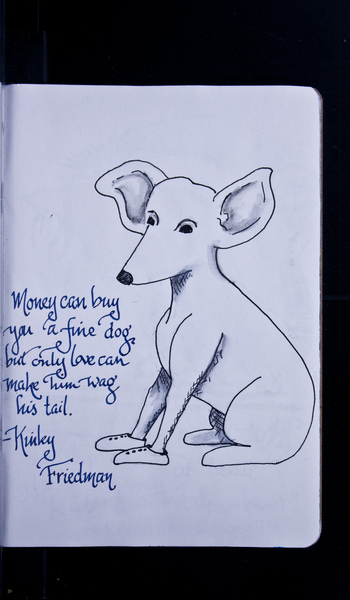 Money can buy
you a fine dog,
but only love can
make him wag
his tail.
-Kinky
Friedman